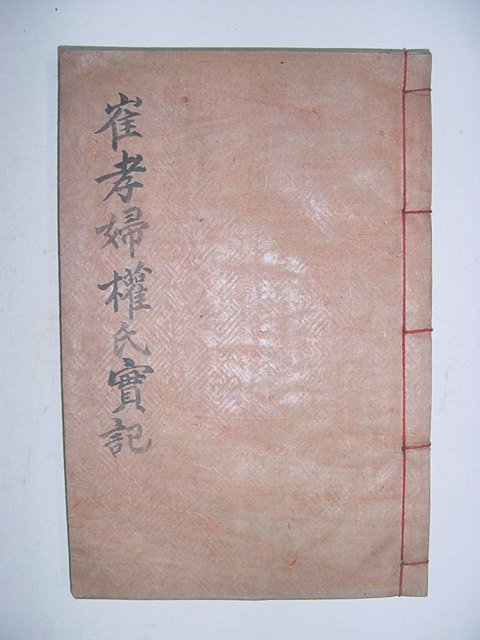 崔孝婦權氏實記